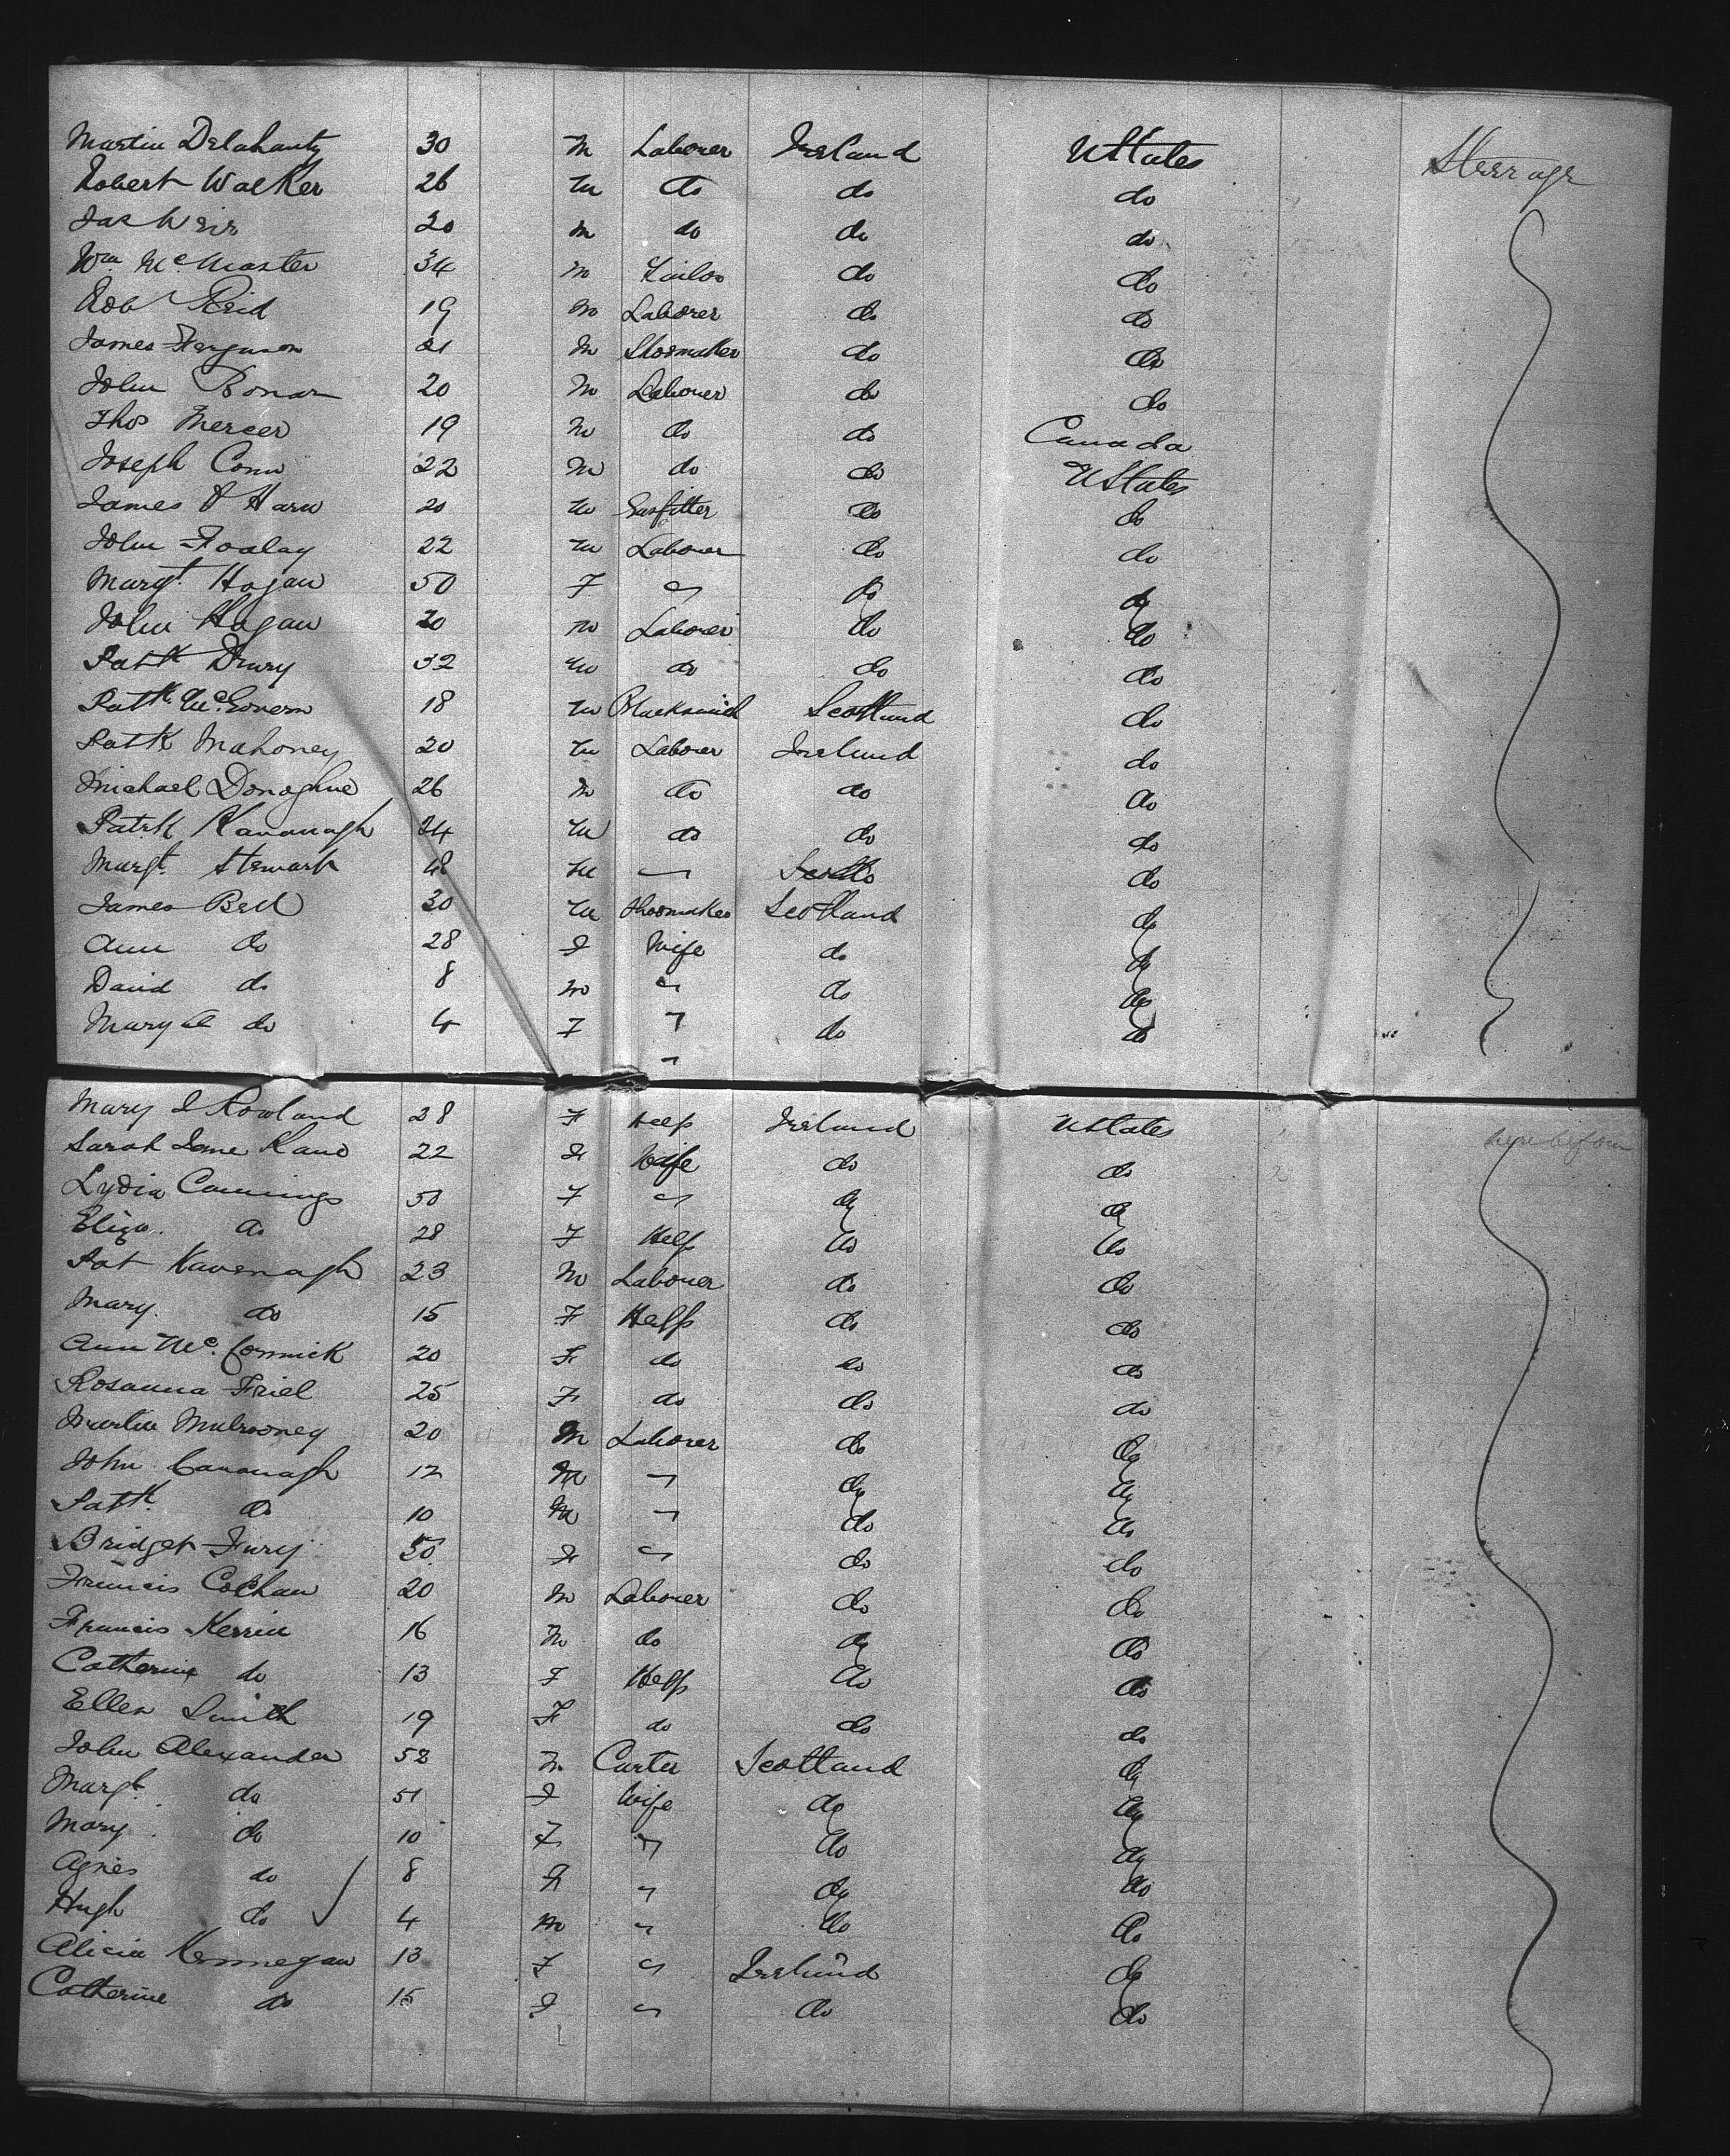 Martin Delahanty 30 M Laborer Ireland UStates Steerage
Robert Walker 26 M do do do
Jas Weir 20 M do do do
Wm McMaster 34 M Tailor do do
Rob Reid 19 M Laborer do do
James Ferguson 21 M Shoemaker do do
John Bonar 20 M Laborer do do
Thos Mercer 19 M do do Canada
Joseph Conn 22 M do do UStates
James O Hara 20 M Gasfitter do do
John Foolay 22 M Laborer do do
Margt Hogan 50 F " do do
John Hogan 20 M Laborer do do
Pattk Drury 32 M do do do
Pattk McGovern 18 M Blacksmith Scotland do
Pattk Mahoney 20 M Laborer Ireland do
Michael Donoghue 26 M do do do
Patrk Kavanagh 24 M do do do
Margt Stewart 48 M " do
James Bell 30 M Shoemaker Scotland do
Ann do 28 F Wife do do
David do 8 M " do do
Mary A do 4 F " do do
"
Mary J Rowland 28 F Help Ireland UStates
Sarah Jane Kane 22 F Wife do do
Lydia Cummings 50 F " do do
Eliza do 28 F Help do do
Pat Kavenagh 23 M Labourer do do
Mary do 15 F Help do do
Ann McCormick 20 F do do do
Rosanna Friel 25 F do do do
Martin Mulrooney 20 M Laborer do do
John Cavanagh 12 M " do do
Pattk do 10 M " do do
Bridget Fury 50 F " do do
Francis Colhan 20 M Laborer do do
Francis Kerrin 16 M do do do
Catherine do 13 F Help do do
Ellen Smith 19 F do do do
John Alexander 52 M Carter Scotland do
Margt do 51 F Wife do do
Mary do 10 F " do do
Agnes do 8 F " do do
Hugh do 4 M " do do
Alicia Kennegan 13 F " Ireland do
Catherine do 15 F " do do